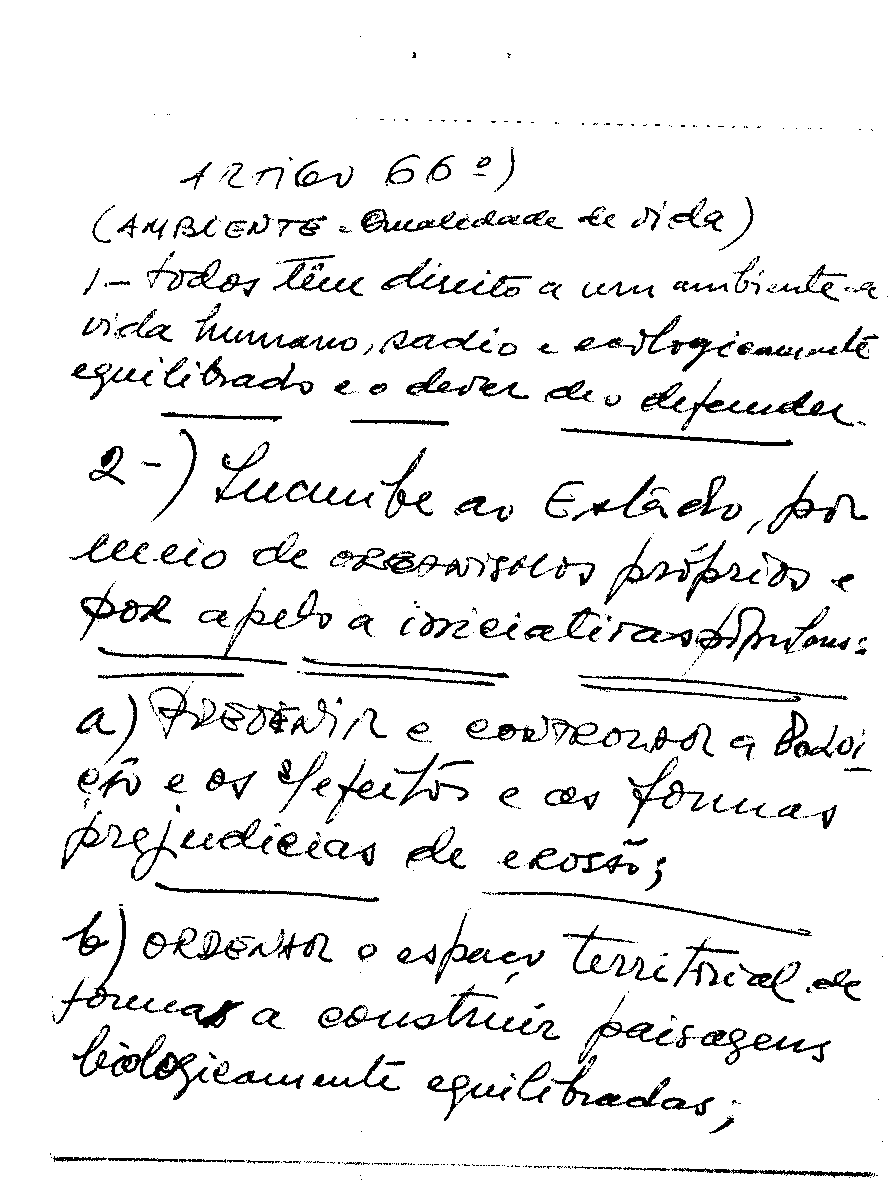 Artigo 66º)
(AMBIENTE - Qualidade de vida)
1 - todos têm direito a um ambiente a
vida humano, sadio e ecologicamente
equilibrado e o dever de o defender.
2-) Incumbe ao Estado, por
meio de ORGANISMOS próprios e
por apelo a iniciativas populares:
a) PREVENIR e CONTROLAR a Polui
ção e os efeitos e as formas
prejudicias de erosão;
b) ORDENAR o espaço territorial de
formas a construir paisagens
biologicamente equilibradas;